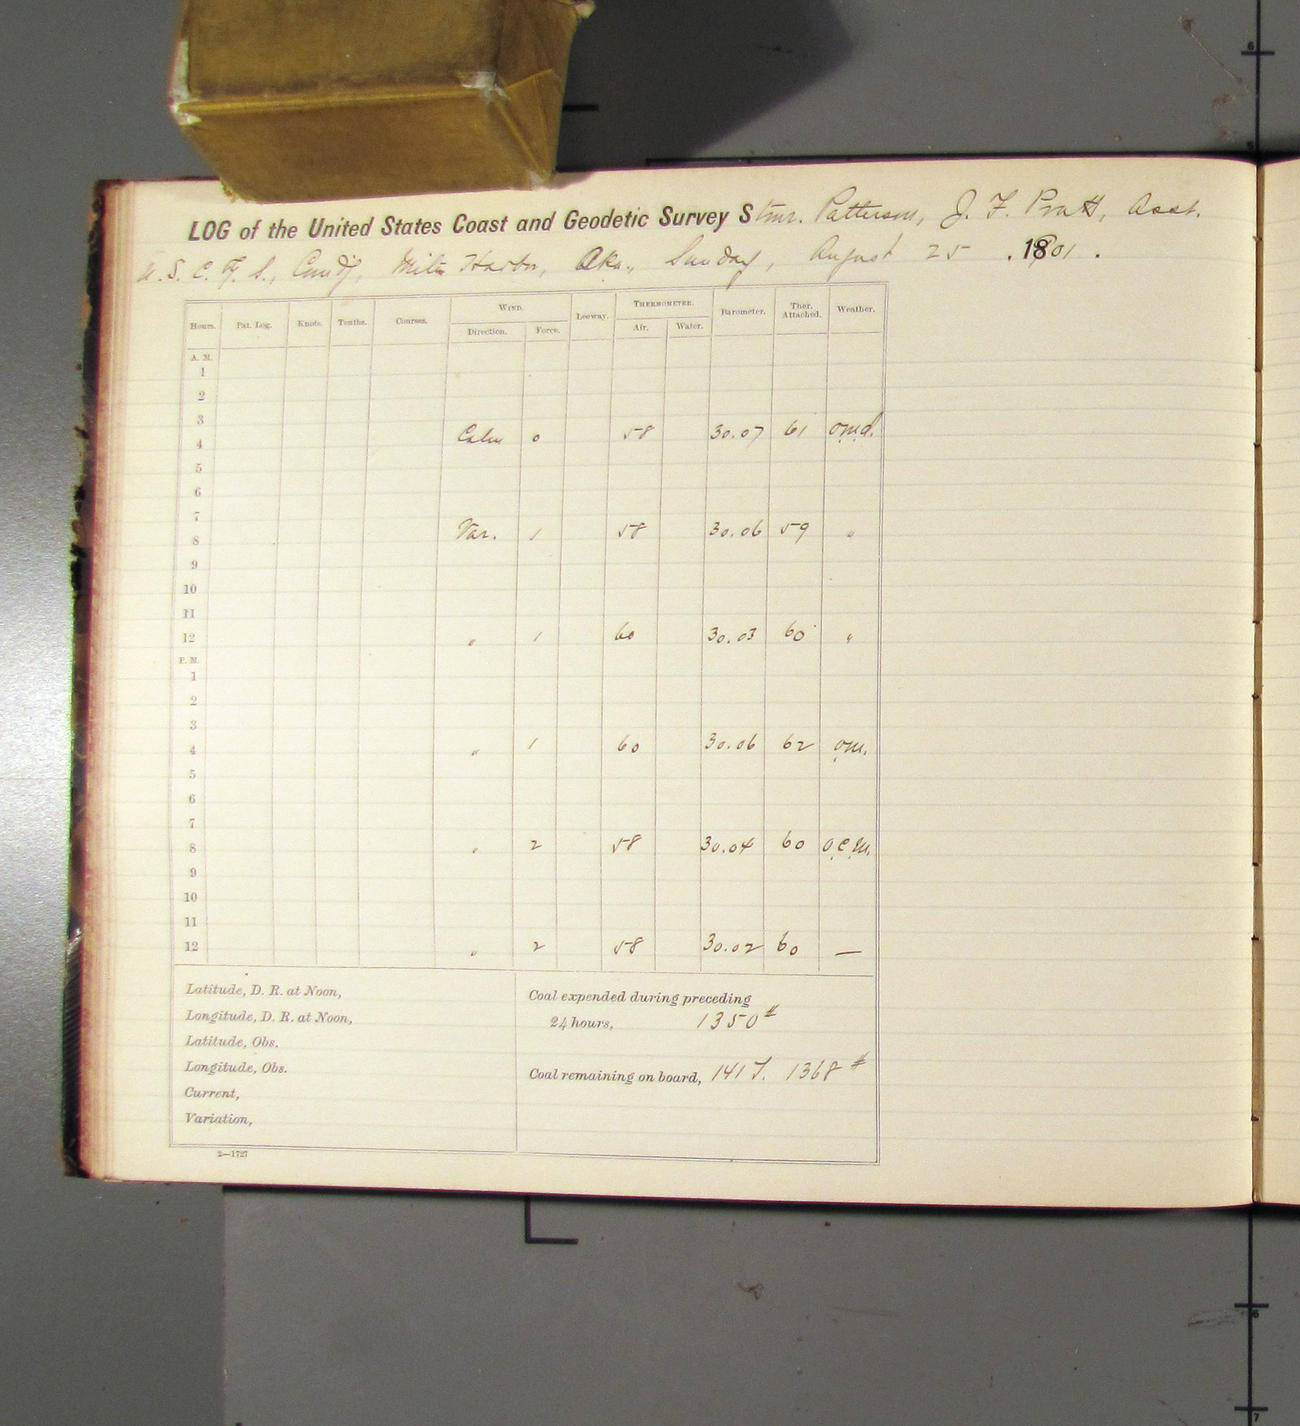 LOG of the United States Coast and Geodetic Survey Stmr. Patterson, J. F. Pratt, Asst.
U. S. C. & G. S., Comd'g, Harbor, Aka., Sunday, August 25, 1901.
Hours. Pat. Log. Knots. Tenths. Courses. WIND. Leeway. THERMOMETER. Barometer. Ther. Attached. Weather.
Direction. Force. Air. Water.
A. M.
1
2
3
4 Calm 0 58 30.07 61 o.m.d.
5
6
7
8 Var. 1 58 30.06 59 "
9
10
11
12 " 1 60 30.03 60 "
P. M.
1
2
3
4 " 1 60 30.06 62 o.m.
5
6
7
8 " 2 58 30.04 60 o.c.m.
9
10
11
12 " 2 58 30.02 60 —
Latitude, D. R. at Noon,
Longitude, D. R. at Noon,
Latitude, Obs.
Longitude, Obs.
Current,
Variation,
Coal expended during preceding
24 hours, 1350#
Coal remaining on board, 141 T. 1368#
2—1727
6
5
6
7